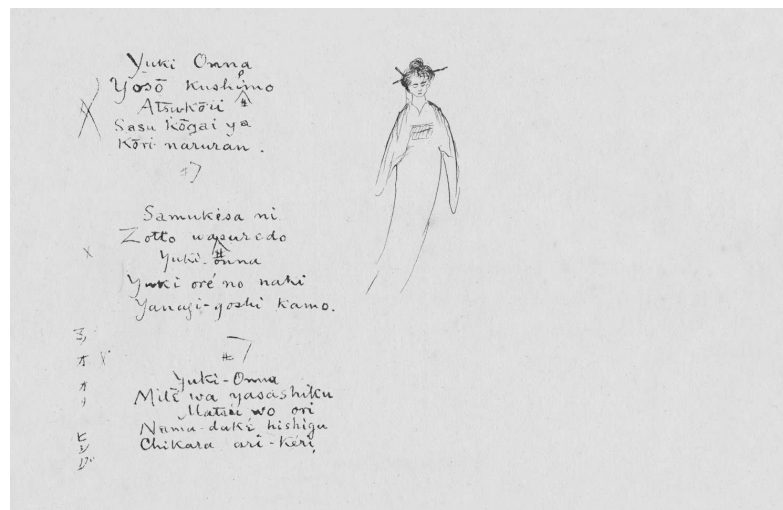 Yuki Onna
Yosō Kushimo
Atsukōri
Sasu Kōgai ya
Kōri naruran.
Samukésa ni
Zotto wa suredo
Yuki-onna
Yuki oré no naki
Yanagi-goshi kamo.
Yuki-Onna
Mité wa yasashiku
Matsu wo ori
Nama-daké hishigu
Chikara ari-kéri,